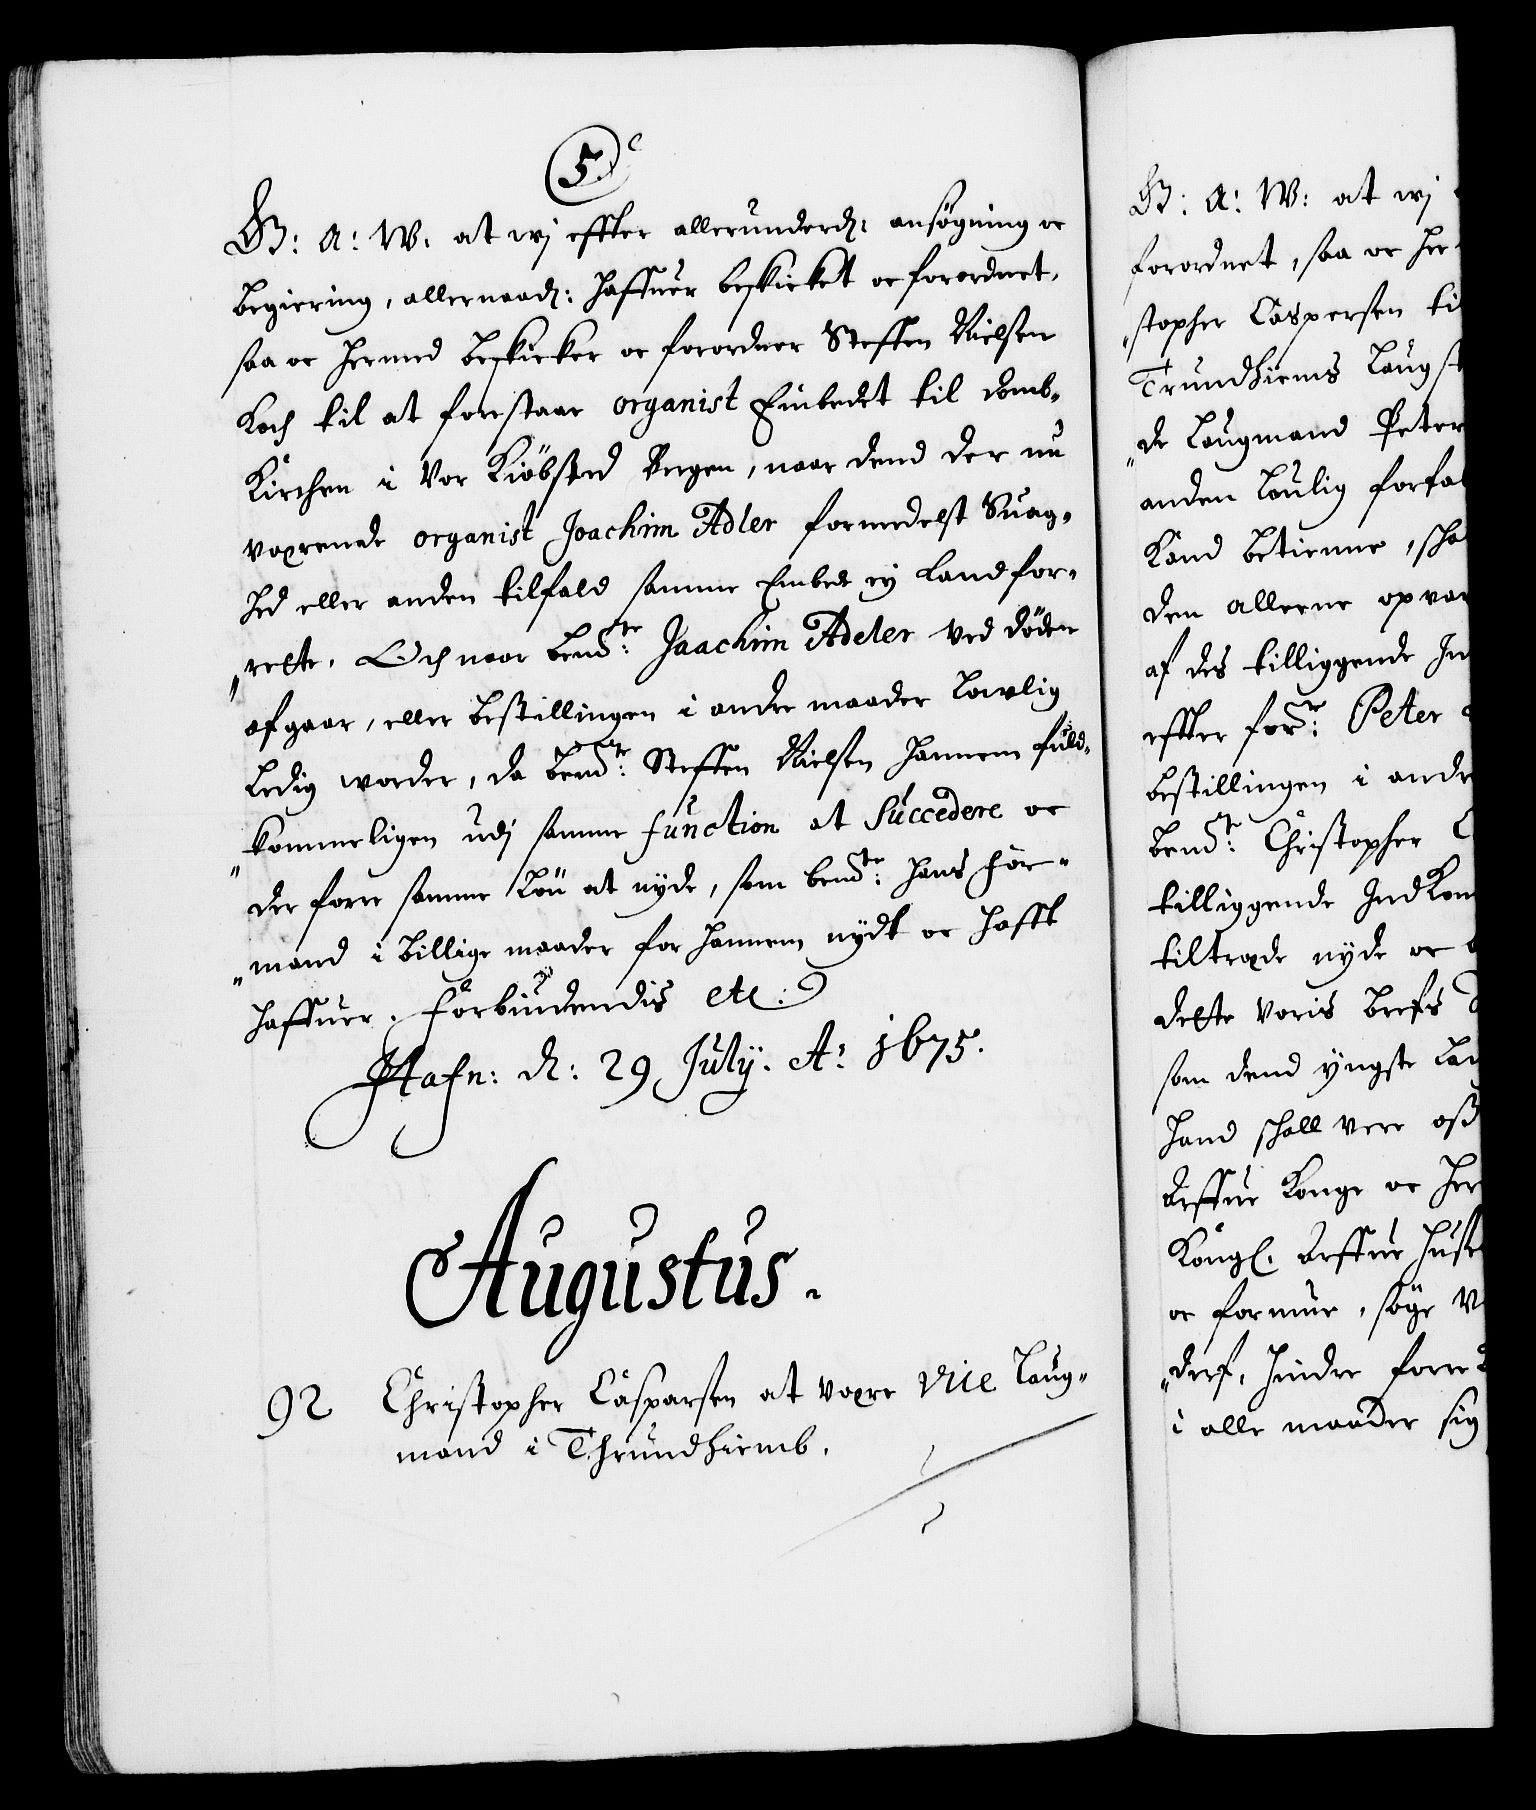 5
G: A: W: at wj effter allerunderd: ansøgning oc
begiering, allernaad: haffuer beskicket oc forordnet,
saa oc hermed beskicker oc forordner Steffen Nielsen
Koch til at forestaae organist Embedet til domb-
Kirchen i Vor Kiöbsted Bergen, naar dend der nu
værende organist Joachim Adler formedelst Suag-
hed eller anden tilfald samme Embede ej kand for-
rette. Och naar bemdte: Jaachim Adeler ved döden
afgaar, eller bestillingen i andre maader lovlig
ledig worder, da bemdte: Steffen Nielsen hannem fuld-
kommeligen udj samme function at Succedere oc
der forre samme Løn at nyde, som bemdte: hans for-
mand i billige maader for hannem nydt oc hafft
haffuer. Forbiudendis etc:
Hafn: d: 29 July. Ao: 1675.
Augustus.
92 Christopher Casparsen at være Vice Laug-
mand i Thrundhiemb.
G: A: W: at wj
forordnet, saa oc her
stopher Caspersen til
Trundhiems Laugst
de Laugmand Peter
anden Loulig forfal
Kand betienne, sha
den allerne opvar
af des tilliggende In
effter forne: Peter
bestillingen i andre
bemdte: Christopher C
tilliggende IndKom
tiltræde nyde oc
dette voris brefs
som dend yngste Lau
hand shall vere oss
Arffue Konge oc Her
Kongl. Arffue Huse
oc formue, søge
derf, hindre forre
i alle maader sig